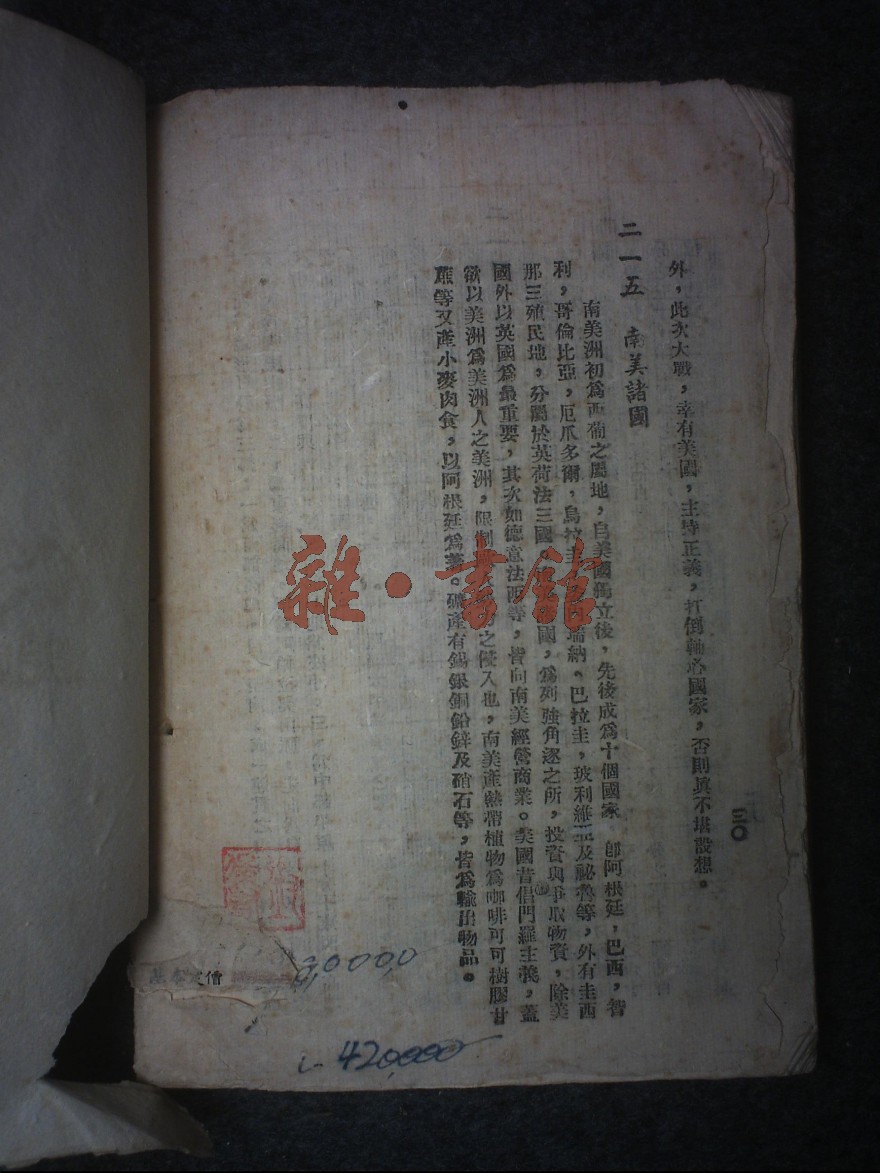 外，此次大戰，幸有美國，主持正義，打倒軸心國家，否則眞不堪設想。
二一五　南美諸國
南美洲初爲西葡之屬地，自美國獨立後，先後成爲十個國家　卽阿根廷，巴西，智
利，哥倫比亞，厄瓜多爾，烏拉圭，瑞納。巴拉圭，玻利維亞及祕魯等，外有圭西
那三殖民地，分屬於英荷法三國，國，爲列強角逐之所，投資與爭取物資，除美
國外以英國爲最重要，其次如德意法西等，皆向南美經營商業。美國昔倡門羅主義，蓋
欲以美洲爲美洲人之美洲，限制之侵入也，南美產熱帶植物爲咖啡可可樹膠甘
蔗等又產小麥肉食，以阿根廷爲著。礦產有錫銀銅鉛鋅及硝石等，皆爲輸出物品。
三〇
雜·書館
定價
420,000